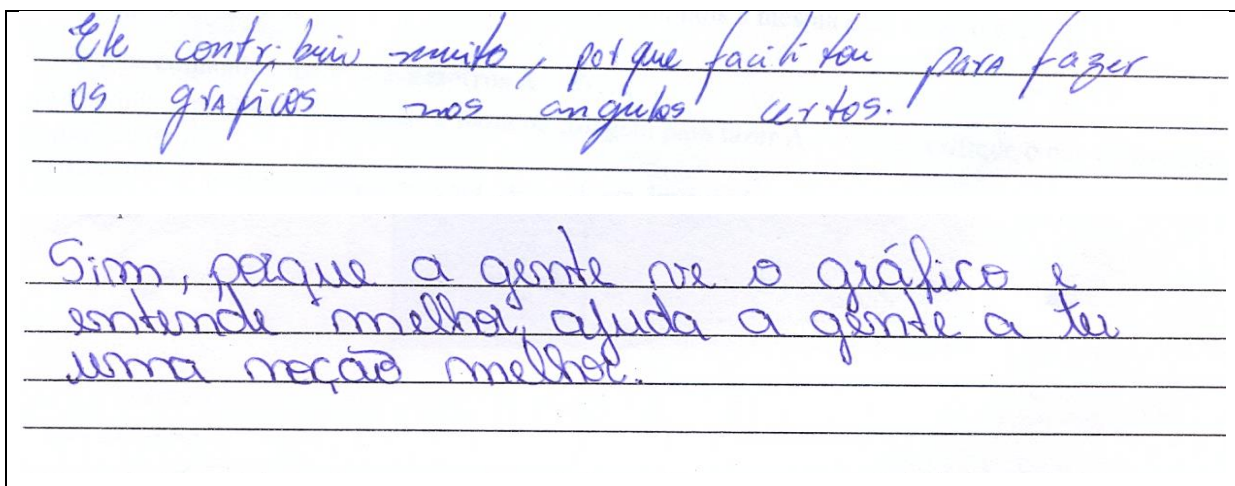 Ele contribuio muito, porque facilitou para fazer
os gráficos nos angulos certos.
Sim, porque a gente ve o gráfico e
entende melhor, ajuda a gente a ter
uma noção melhor.